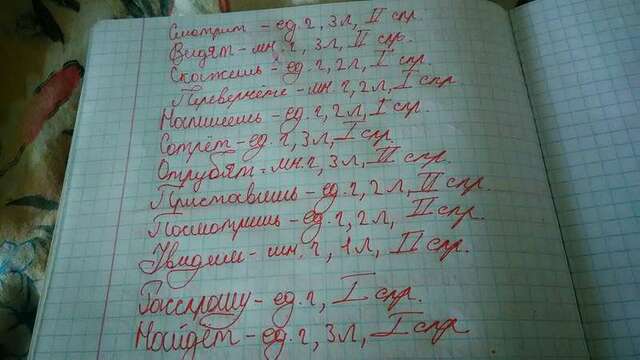 Смотрит - ед. ч, 3 л, II спр.
Видят - мн. ч, 3 л, II спр.
Скажешь - ед. ч, 2 л, I спр.
Перевернёте - мн. ч, 2 л, I спр
Напишешь - ед. ч, 2 л, I спр.
Сотрёт - ед. ч, 3 л, I спр.
Отрубят - мн. ч, 3 л, II спр.
Приставишь - ед. ч, 2 л, II спр.
Посмотришь - ед. ч, 2 л, II спр.
Увидим - мн. ч, 1 л, II спр.
Расспрошу - ед. ч, I спр.
Найдёт - ед. ч, 3 л, I спр